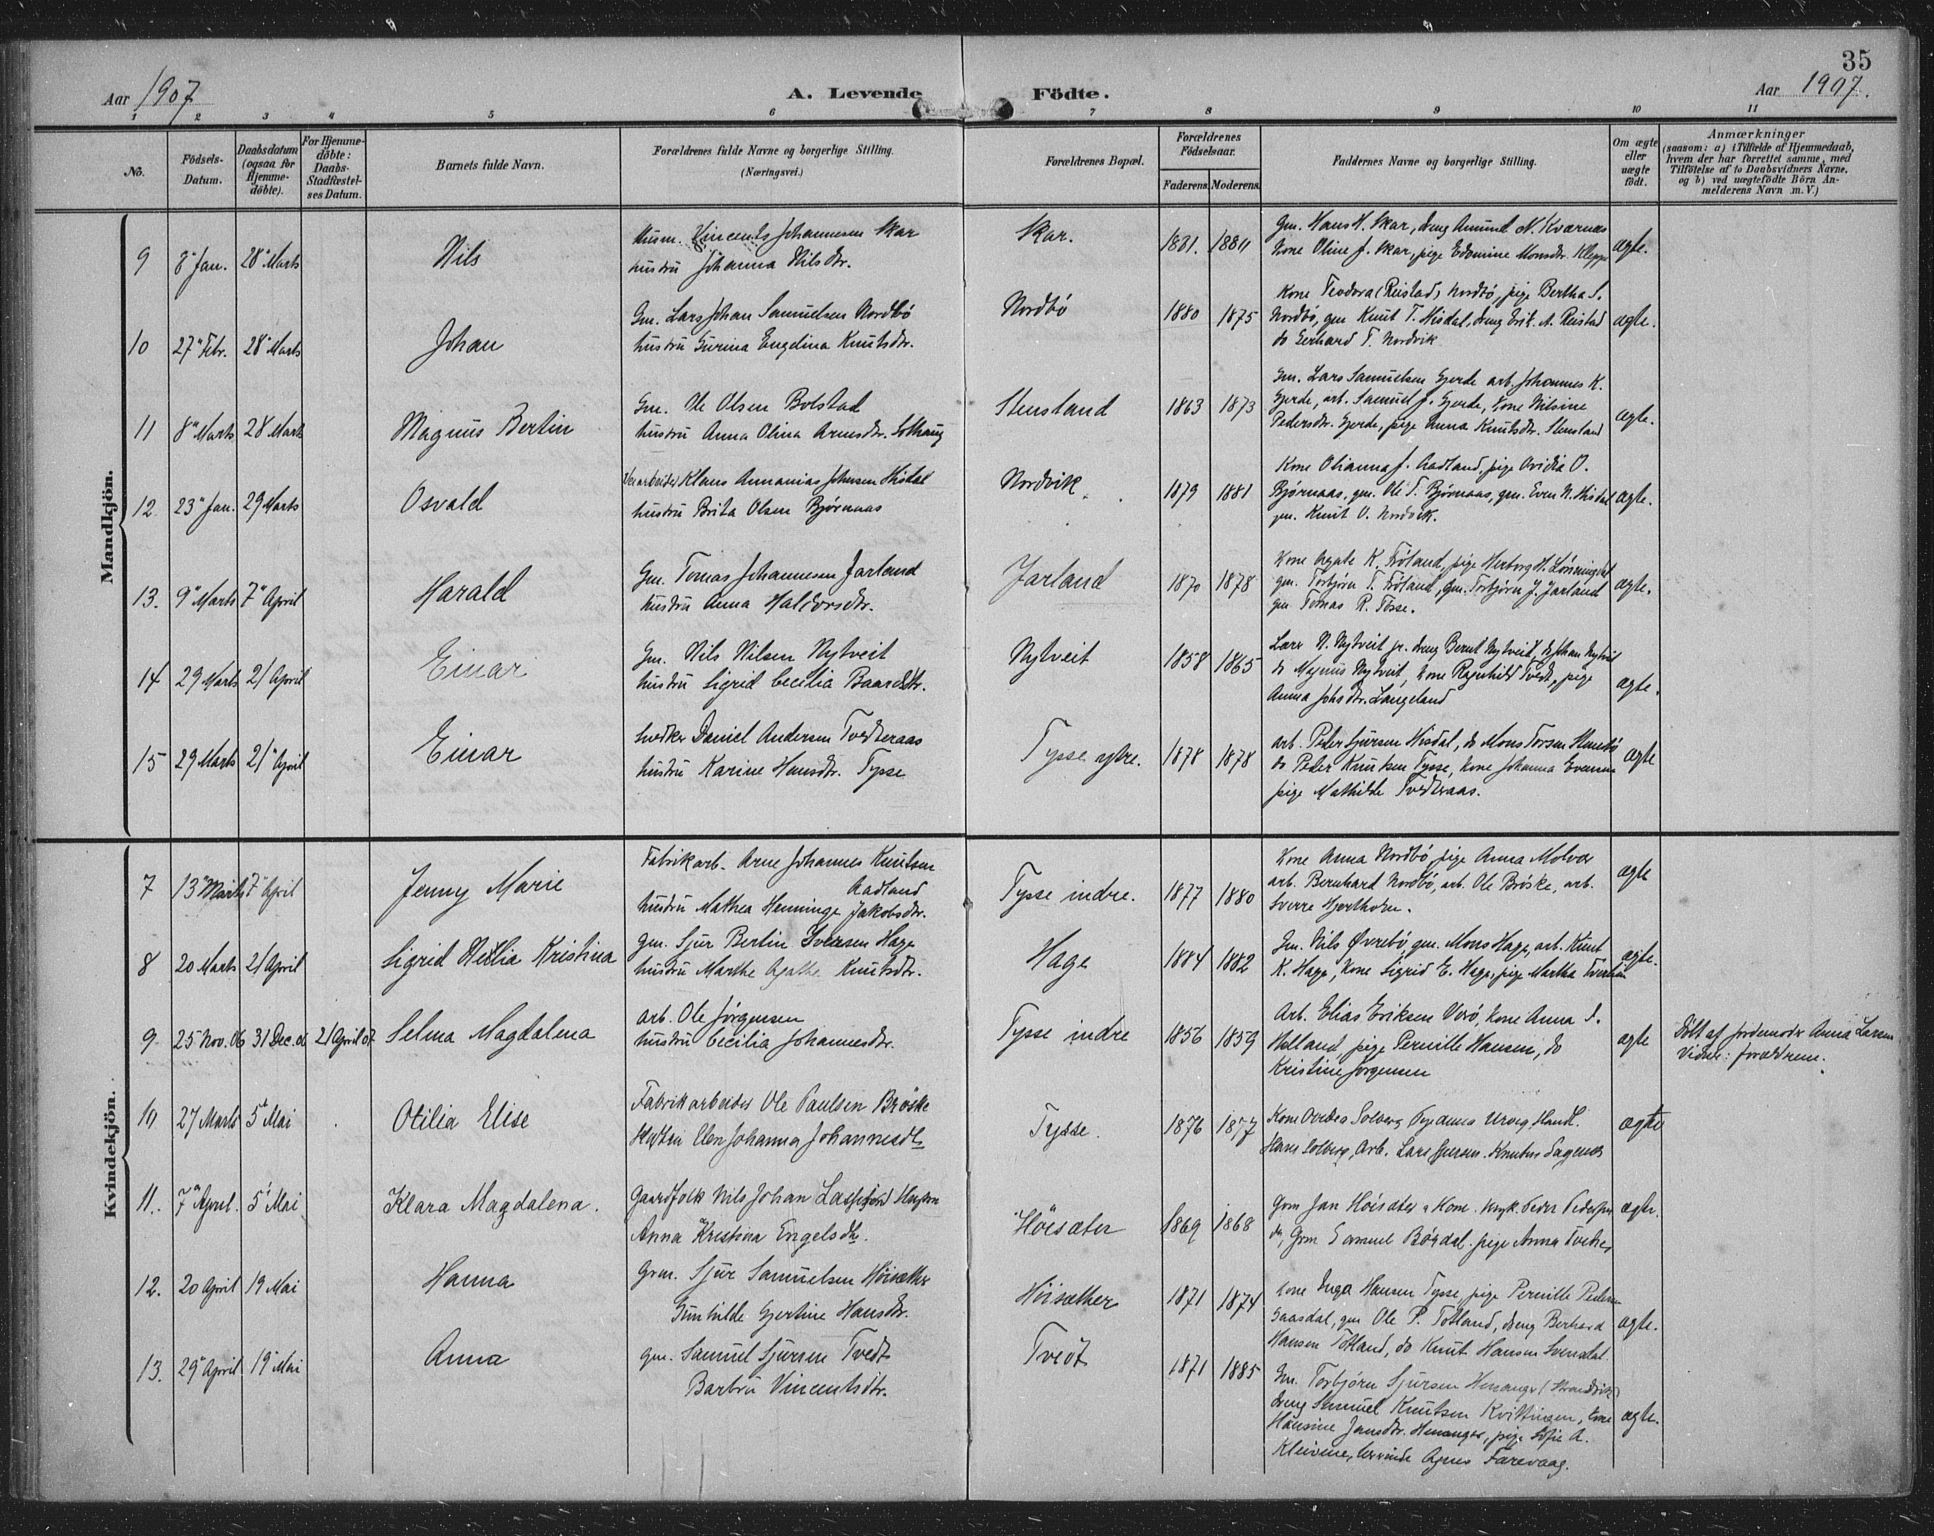 35
Aar 1907
A. Levende Födte.
Aar 1907.
1 2 3 4 5 6 7 8 9 10 11
No.
Födsels-Datum.
Daabsdatum (ogsaa for Hjemme-döbte).
For Hjemme-döbte: Daabs-Stadfæstel-ses Datum.
Barnets fulde Navn.
Forældrenes fulde Navne og borgerlige Stilling.
(Næringsvei.)
Forældrenes Bopæl.
Forældrenes Födselsaar.
Faderens. Moderens.
Faddernes Navne og borgerlige Stilling.
Om ægte eller uægte födt.
Anmærkninger
(saasom: a) i Tilfælde af Hjemmedaab,
hvem der har forrettet samme, med
Tilföielse af to Daabsvidners Navne,
og b) ved uægtefödte Börn An-
melderens Navn m. V.)
Mandkjön.
9 8" Jan. 28" Marts Nils
Husm. Vincents Johannesen Skar
hustru Johanna Nilsdtr.
Skar. 1881. 1880
Gm. Hans H. Skar, dreng Amund N. Kvernes
Kone Oline J. Skar, pige Edomine Monsdtr. Kleppe
ægte.
10 27" Febr. 28" Marts Johan
Gm. Lars Johan Samuelsen Nordbö
hustru Gurina Engelina Knutsdtr.
Nordbö 1880 1875
Kone Teodora (Reistad) Nordbö, pige Bertha S.
Nordbö, gm Knut T. Hisdal, dreng Erik A. Reistad
do Gerhard T. Nordvik
ægte.
11 8" Marts 28 Marts Magnus Bertin
Gm. Ole Olsen Bolstad
hustru Anna Olina Arnesdtr. Solhaug
Stensland 1863 1873
Gm. Lars Samuelsen Gjerde arb. Johannes K.
Gjerde, arb. Samuel J. Gjerde, kone Nilsine
Pedersdtr. Gjerde, pige Anna Knutsdtr. Stensland
ægte.
12 23" Jan. 29 Marts Osvald
Veiarbeider Klaus Annanias Johnsen Hisdal
hustru Brita Olsen Bjørnaas
Nordvik. 1879 1881
Kone Olianna J. Aadland, pige Ovidia O.
Bjørnaas, gm. Ole T. Bjørnaas, gm. Even N. Hisdal
gm. Knut O. Nordvik.
ægte.
13. 9" Marts 7" April Harald
Gm. Tomas Johannesen Jarland
hustru Anna Haldorsdtr.
Jarland 1870 1878
Kone Agate K. Fröland, pige Herborg H. Lønningdal
gm. Torbjørn T. Fröland, gm. Torbjørn J. Jarland
gm Tomas R. Tosse.
ægte.
14 29 Marts 21 April Einar
Gm. Nils Nilsen Nytveit
hustru Sigrid Cecilia Baardsdtr.
Nytveit 1858 1865
Lærer N. Nytveit jr. dreng Bernt Nytveit, do Johan Nytveit
do Magnus Nytveit, kone Ragnhild Tvedt, pige
Anna Johsdtr. Langeland
ægte.
15 29 Marts 21" April Einar
Snedker Daniel Andersen Tvedteraas
hustru Karine Hansdtr. Tysse
Tysse ytre. 1878 1878
arb. Peder Sjursen Hisdal, do Mons Torsen
do Peder Knutsen Tysse, kone Johanna Evensen
pige Mathilde Tvedteraas.
ægte
Kvindekjön.
7 13" Marts 7" April Jenny Marie
Fabrikarb. Arne Johannes Knutsen
Aadland
hustru Mathea Henninge Jakobsdtr.
Tysse indre. 1877 1880
Kone Anna Nordbö, pige Anna Molvær
arb. Bernhard Nordbö, arb. Ole Bröske, arb.
Sverre Hjorthorn.
ægte
8 20 Marts 21 April Sigrid Kristina
gm. Sjur Bertin Iversen Hage
hustru Marthe Agathe Knutsdtr.
Hage 1884 1882
Gm. Nils Övrebö, gm. Mons Hage, arb. Knut
K. Hage, kone Sigrid E. Hage, pige Martha
ægte.
9 25 Nov. 06 31 Dec. 06 21 April 07 Selma Magdalena
arb. Ole Jörgensen
hustru Cecilia Johannesdtr.
Tysse indre 1856 1859
Arb. Elias Eriksen Verö, kone Anna S.
Hetland, pige Pernille Hansen, do
Kristine Jørgensen
ægte
Döbt af jordemoder Anna Larsen
Vidner: forældrene.
10 27 Marts 5" Mai Otilia Elise
Fabrikarbeider Ole Paulsen Bröske
Hustru Elen Johanna Johannesdtr
Tysse. 1876 1877
Kone Ovidia Solberg Urvig, Handl.
Hans Solberg, Arb. Lars Sjursen. Knutus
ægte
11. 7" April. 5" Mai Klara Magdalena.
Gaardfolk Nils Johan Hansen
Anna Kristina Engelsdtr.
Höisæter 1869 1868
Grm Jan Höisæter, Kone. Peder Pedersen
do, Grm Samuel Bördal. pige Anna Tveitnes
ægte.
12. 20 April 19 Mai Hanna
Grm. Sjur Samuelsen Höisæther
Gunhilde Gjertine Hansdtr.
Höisæther 1871 1874
Kone Inga Hansen Tysse, pige Pernille Pedersen
Gaasdal, gm Ole P. Totland, dreng Berhard
Hansen Totland, do Knut Hansen Svendal.
ægte.
13. 29" April 19" Mai Anna
gm. Samuel Sjursen Tvedt
Barbru Vincentsdtr.
Tvedt 1871 1885
Gm. Torbjørn Sjursen Henanger (Strandvik)
dreng Samuel Knutsen Kvittingen, kone
Hansine Jansdtr. Henanger, pige Sofie A.
Kleivene, lærerinde Agnes Farevaag.
ægte.